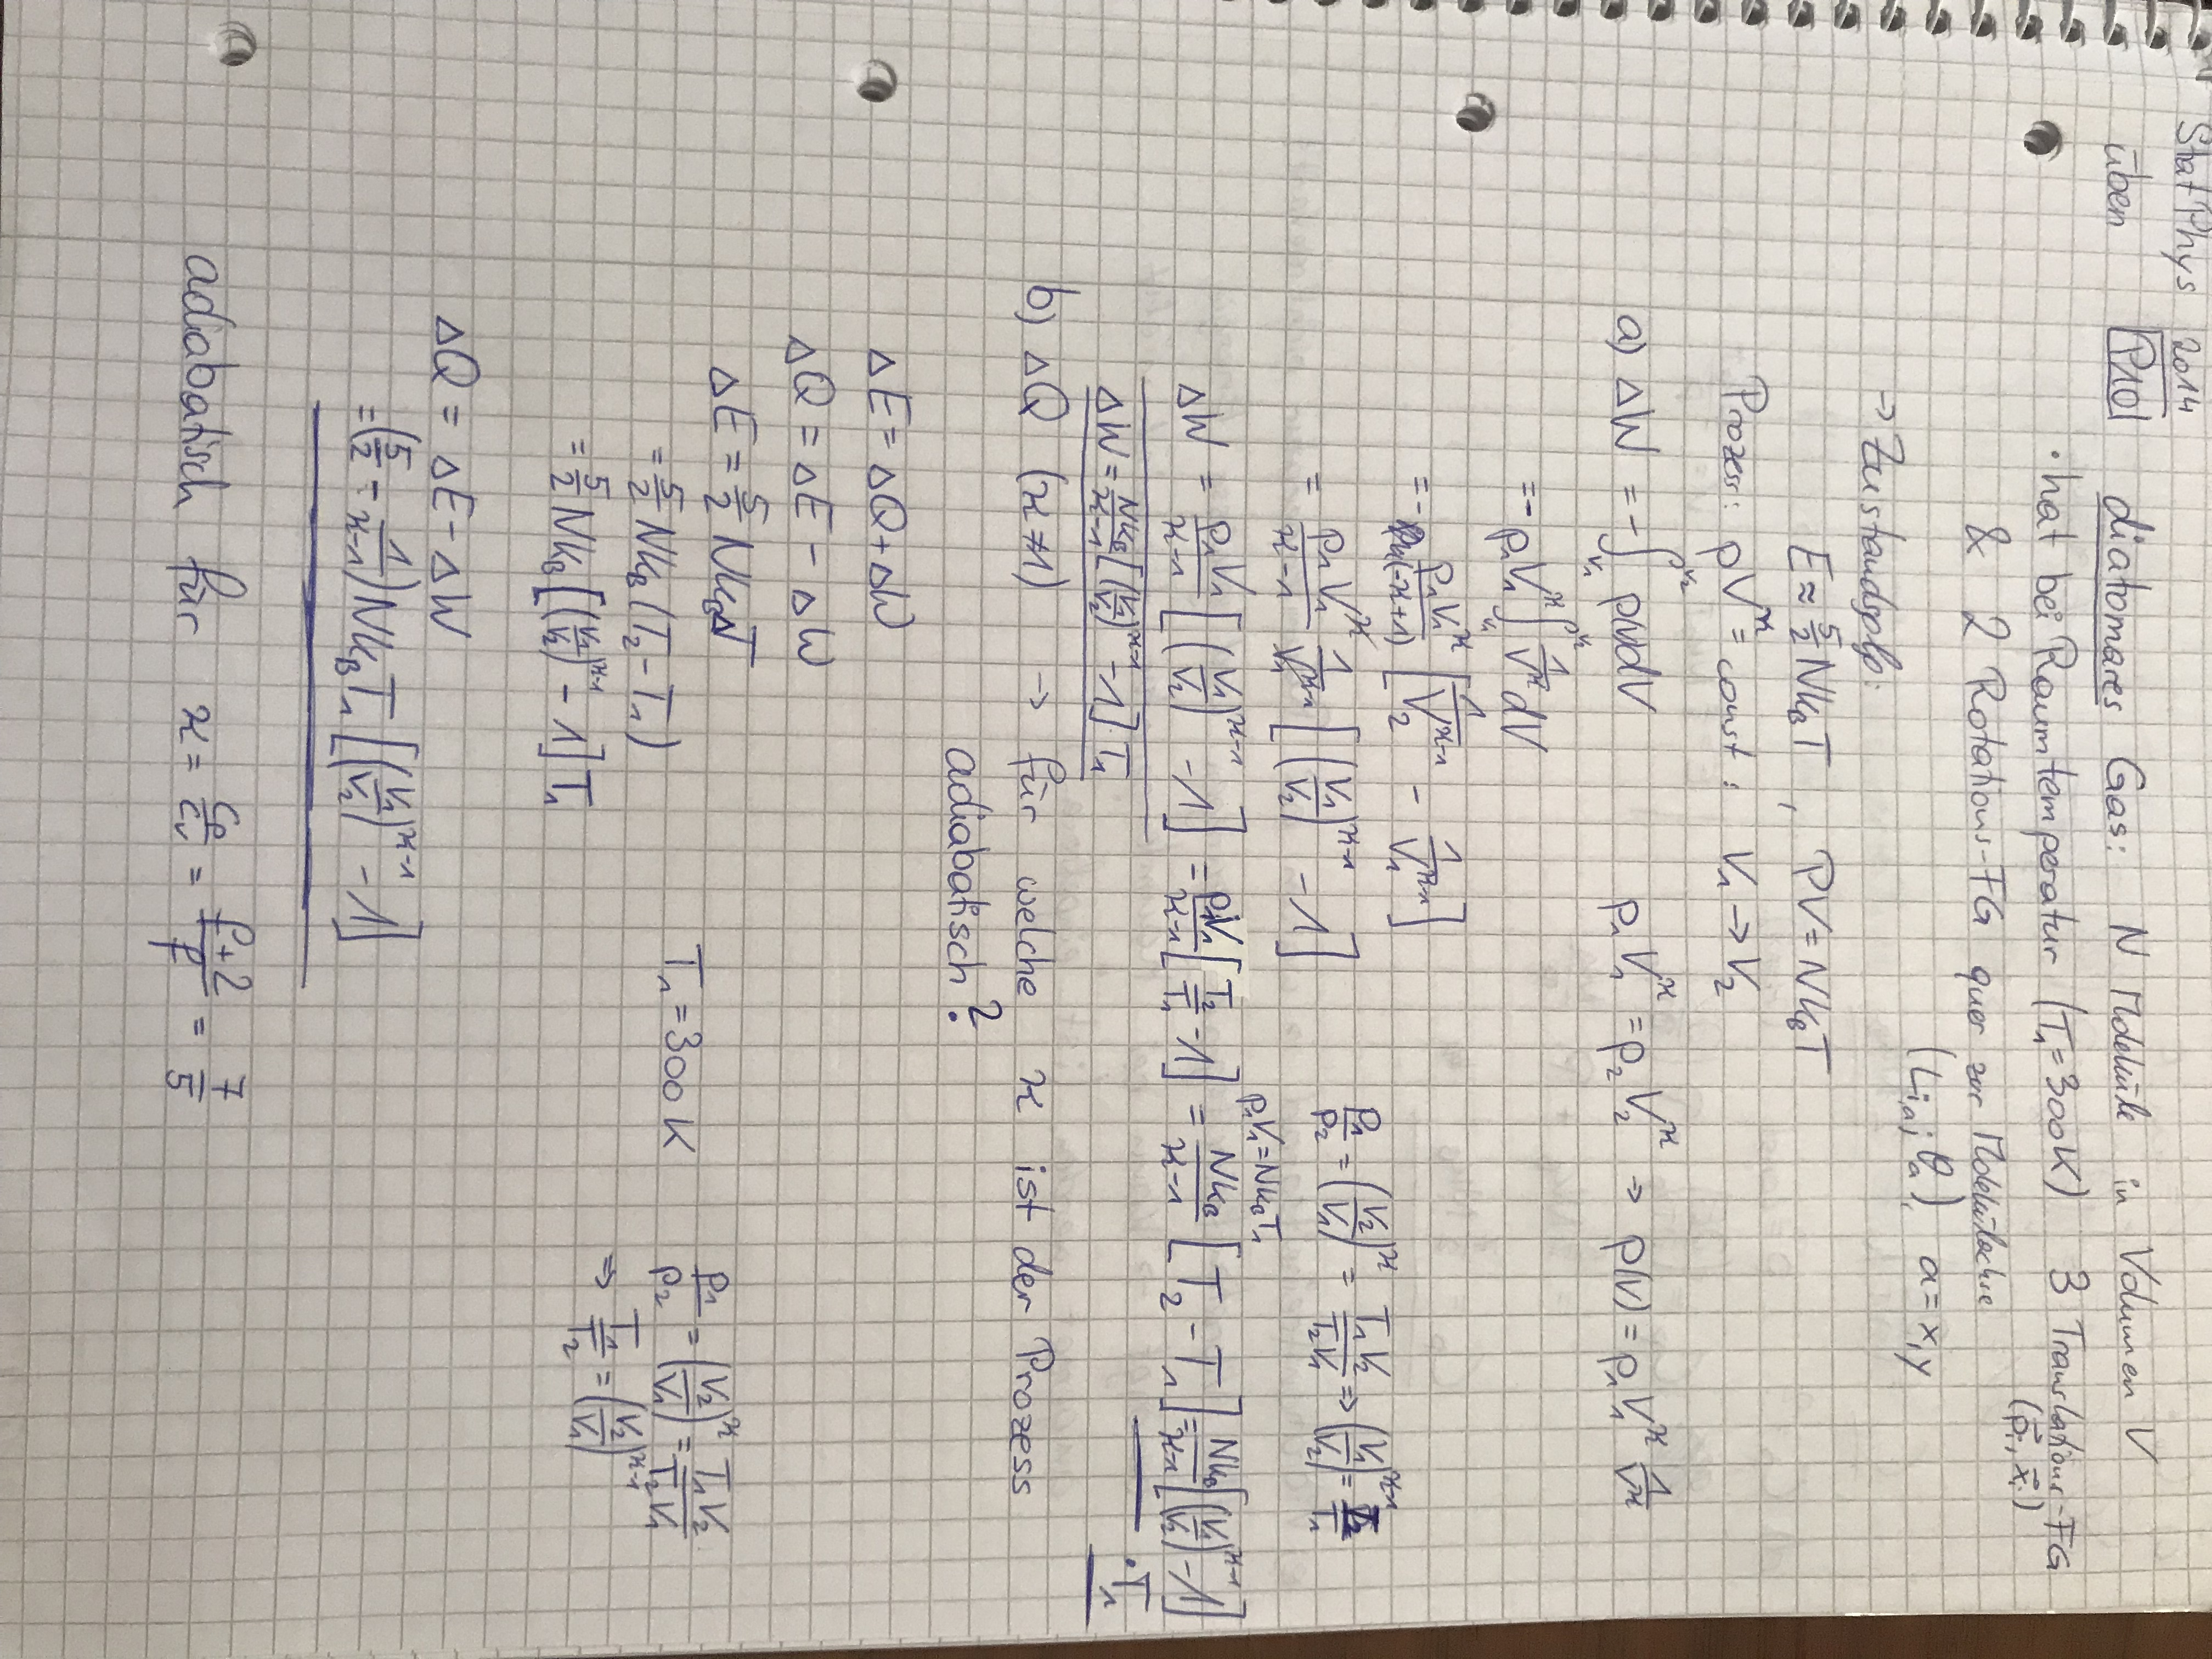 StatPhys 2014
üben P10 diatomares Gas: N Moleküle in Volumen V
· hat bei Raumtemperatur (T₁=300K) 3 Translations-FG (p⃗ᵢ, x⃗ᵢ)
& 2 Rotations-FG quer zur Molekülachse
(Lᵢ,ₐ; θₐ), a=x,y
→ Zustandsglg:
E ≈ 5/2 Nk_BT, PV = Nk_BT
Prozess: pV^ϰ = const; V₁ → V₂
a) ΔW = -∫_{V₁}^{V₂} p(V)dV p₁V₁^ϰ = p₂V₂^ϰ ⇒ p(V) = p₁V₁^ϰ 1/V^ϰ
= -p₁V₁^ϰ ∫_{V₁}^{V₂} 1/V^ϰ dV
= - p₁V₁^ϰ/(-ϰ+1) [1/V₂^{ϰ-1} - 1/V₁^{ϰ-1}]
= p₁V₁^ϰ/(ϰ-1) 1/V₁^{ϰ-1} [(V₁/V₂)^{ϰ-1} - 1] p₁/p₂ = (V₂/V₁)^ϰ = T₁V₂/T₂V₁ ⇒ (V₁/V₂)^{ϰ-1} = T₂/T₁
p₁V₁=Nk_BT₁
ΔW = p₁V₁/(ϰ-1) [(V₁/V₂)^{ϰ-1} - 1] = p₁V₁/(ϰ-1) [T₂/T₁ - 1] = Nk_B/(ϰ-1) [T₂ - T₁] = Nk_B/(ϰ-1) [(V₁/V₂)^{ϰ-1} - 1] · T₁
ΔW = Nk_B/(ϰ-1) [(V₁/V₂)^{ϰ-1} - 1] · T₁
b) ΔQ (ϰ≠1) → für welche ϰ ist der Prozess
adiabatisch?
ΔE = ΔQ + ΔW
ΔQ = ΔE - ΔW
ΔE = 5/2 Nk_BΔT T₁ = 300K p₁/p₂ = (V₂/V₁)^ϰ = T₁V₂/T₂V₁
= 5/2 Nk_B (T₂ - T₁) ⇒ T₁/T₂ = (V₂/V₁)^{ϰ-1}
= 5/2 Nk_B [(V₁/V₂)^{ϰ-1} - 1] T₁
ΔQ = ΔE - ΔW
= (5/2 - 1/(ϰ-1)) Nk_B T₁ [(V₁/V₂)^{ϰ-1} - 1]
adiabatisch für ϰ = c_p/c_v = (f+2)/f = 7/5